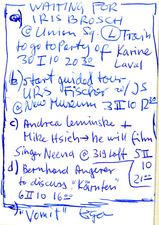 WAITING FOR
IRIS BROSCH
@ Union Sq. (L) Train
to go to Party of Karine
30 I 10 20 30 Laval
b) start guided tour
URS Fischer w/ JS
@ New Museum 3 II 10
c) Andrea Leminske +
Mike Hsich → he will film
Singer Neena @ 319 Left 5 II
10
d) Bernhard Angerer 21 00
to discuss "Kärnten"
6 II 10 16 00
"Vomit"